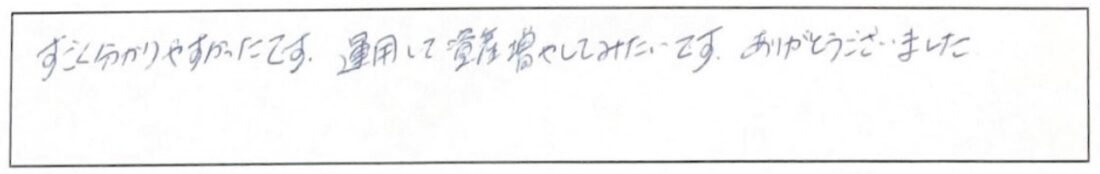 すごく分かりやすかったです. 運用して資産増やしてみたいです. ありがとうございました